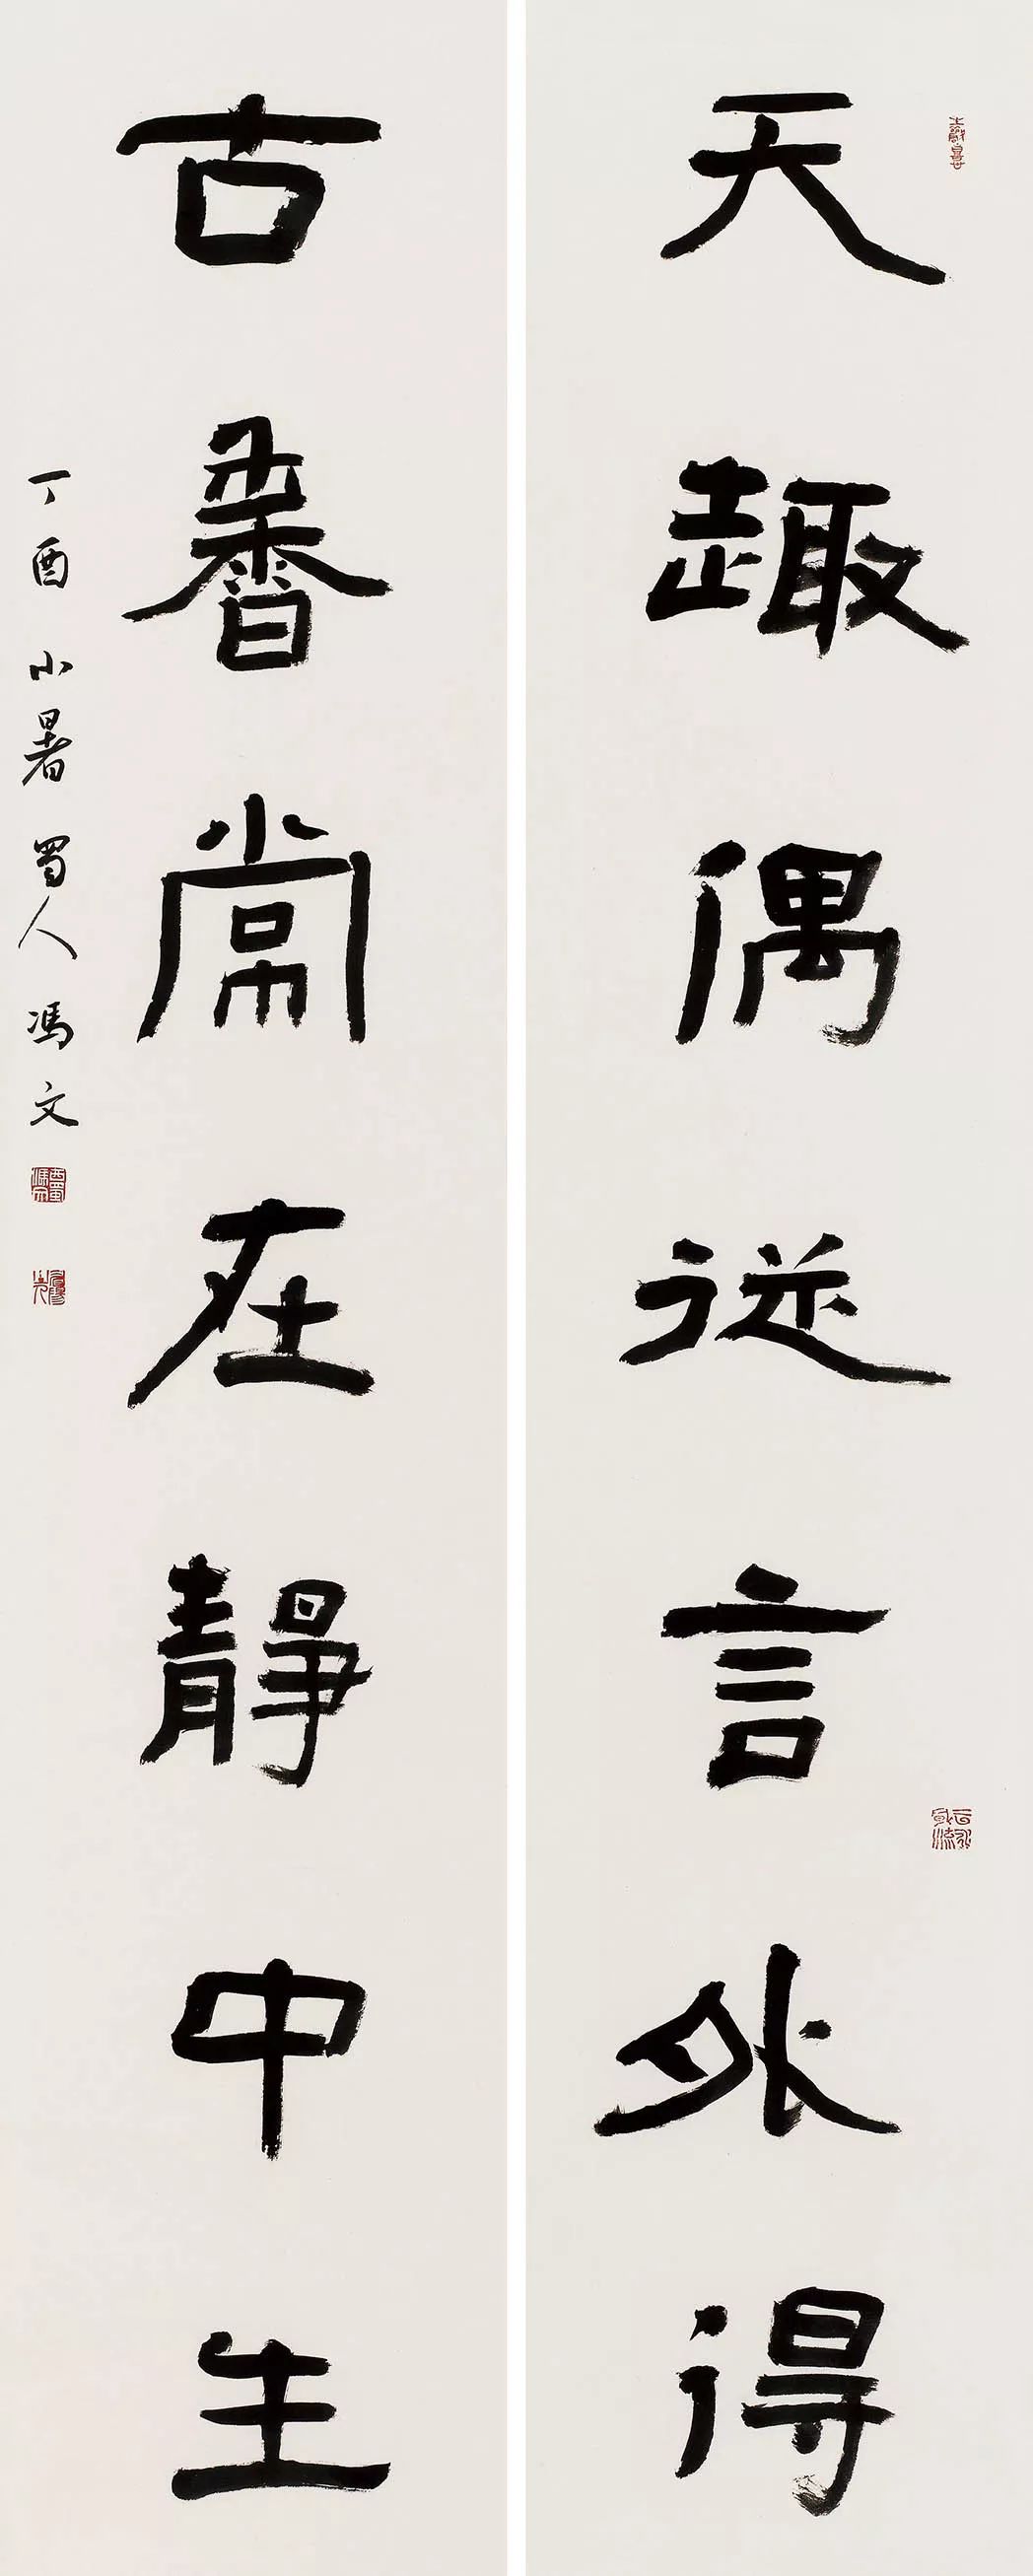 天趣偶從言外得
古香常在靜中生
丁酉小暑蜀人馮文